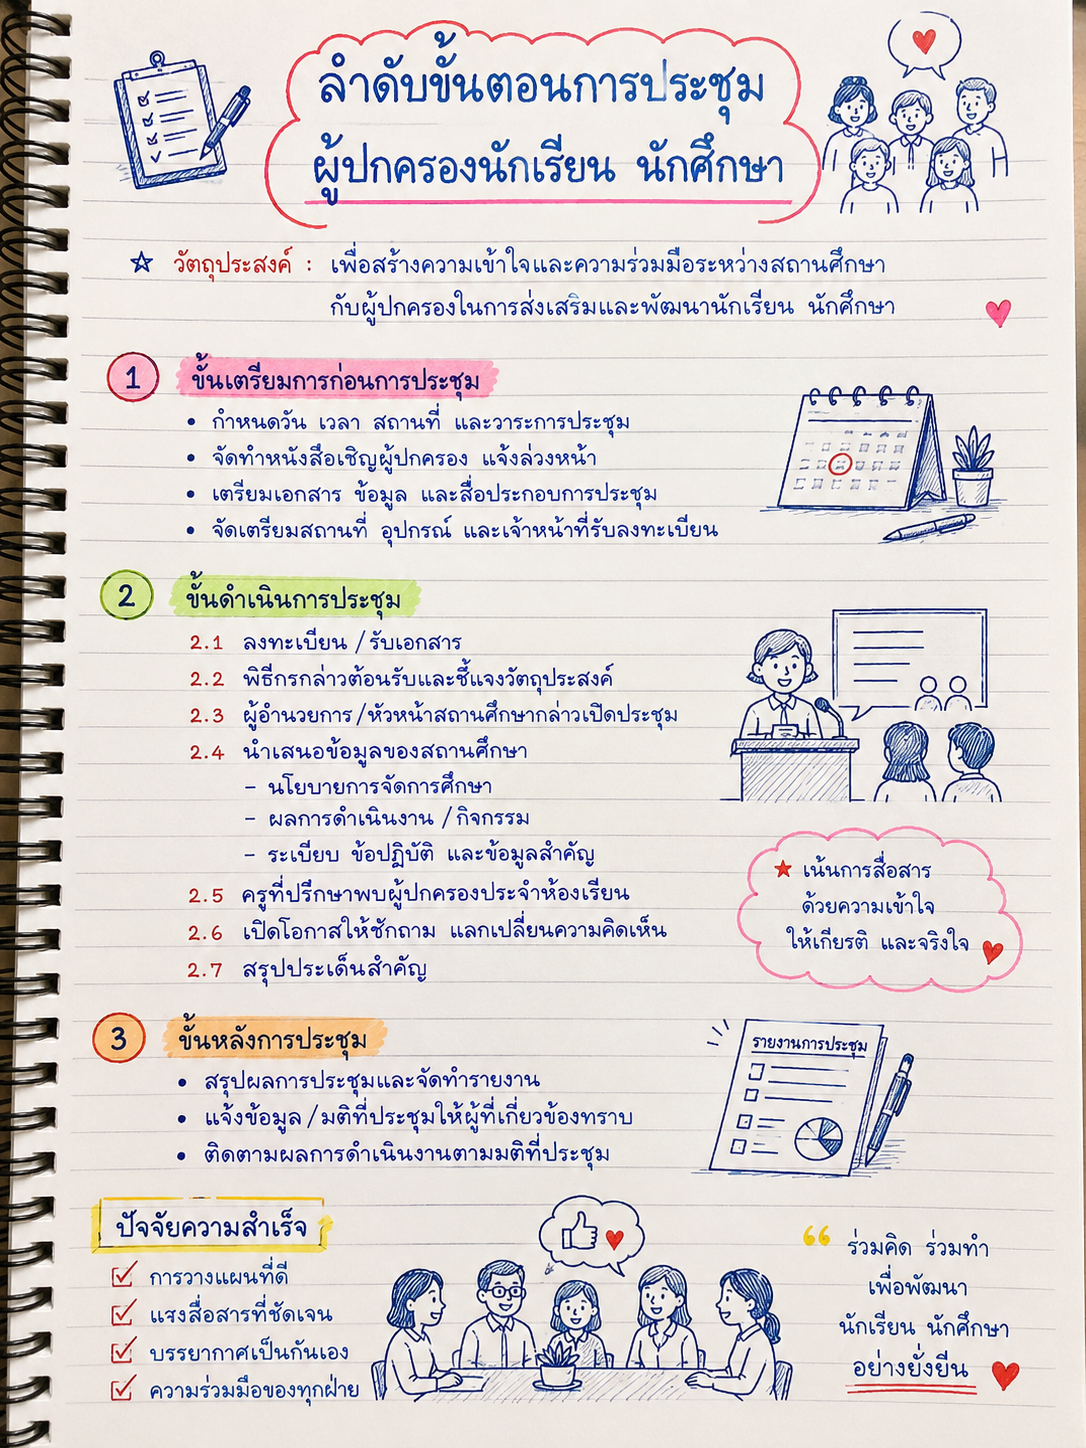 ลำดับขั้นตอนการประชุม
ผู้ปกครองนักเรียน นักศึกษา
วัตถุประสงค์ : เพื่อสร้างความเข้าใจและความร่วมมือระหว่างสถานศึกษา
กับผู้ปกครองในการส่งเสริมและพัฒนานักเรียน นักศึกษา
1 ขั้นเตรียมการก่อนการประชุม
• กำหนดวัน เวลา สถานที่ และวาระการประชุม
• จัดทำหนังสือเชิญผู้ปกครอง แจ้งล่วงหน้า
• เตรียมเอกสาร ข้อมูล และสื่อประกอบการประชุม
• จัดเตรียมสถานที่ อุปกรณ์ และเจ้าหน้าที่รับลงทะเบียน
2 ขั้นดำเนินการประชุม
2.1 ลงทะเบียน / รับเอกสาร
2.2 พิธีกรกล่าวต้อนรับและชี้แจงวัตถุประสงค์
2.3 ผู้อำนวยการ/หัวหน้าสถานศึกษากล่าวเปิดประชุม
2.4 นำเสนอข้อมูลของสถานศึกษา
- นโยบายการจัดการศึกษา
- ผลการดำเนินงาน / กิจกรรม
- ระเบียบ ข้อปฏิบัติ และข้อมูลสำคัญ
2.5 ครูที่ปรึกษาพบผู้ปกครองประจำห้องเรียน
2.6 เปิดโอกาสให้ซักถาม แลกเปลี่ยนความคิดเห็น
2.7 สรุปประเด็นสำคัญ
เน้นการสื่อสาร
ด้วยความเข้าใจ
ให้เกียรติ และจริงใจ
3 ขั้นหลังการประชุม
• สรุปผลการประชุมและจัดทำรายงาน
• แจ้งข้อมูล / มติที่ประชุมให้ผู้ที่เกี่ยวข้องทราบ
• ติดตามผลการดำเนินงานตามมติที่ประชุม
รายงานการประชุม
ปัจจัยความสำเร็จ
การวางแผนที่ดี
แรงสื่อสารที่ชัดเจน
บรรยากาศเป็นกันเอง
ความร่วมมือของทุกฝ่าย
“ ร่วมคิด ร่วมทำ
เพื่อพัฒนา
นักเรียน นักศึกษา
อย่างยั่งยืน